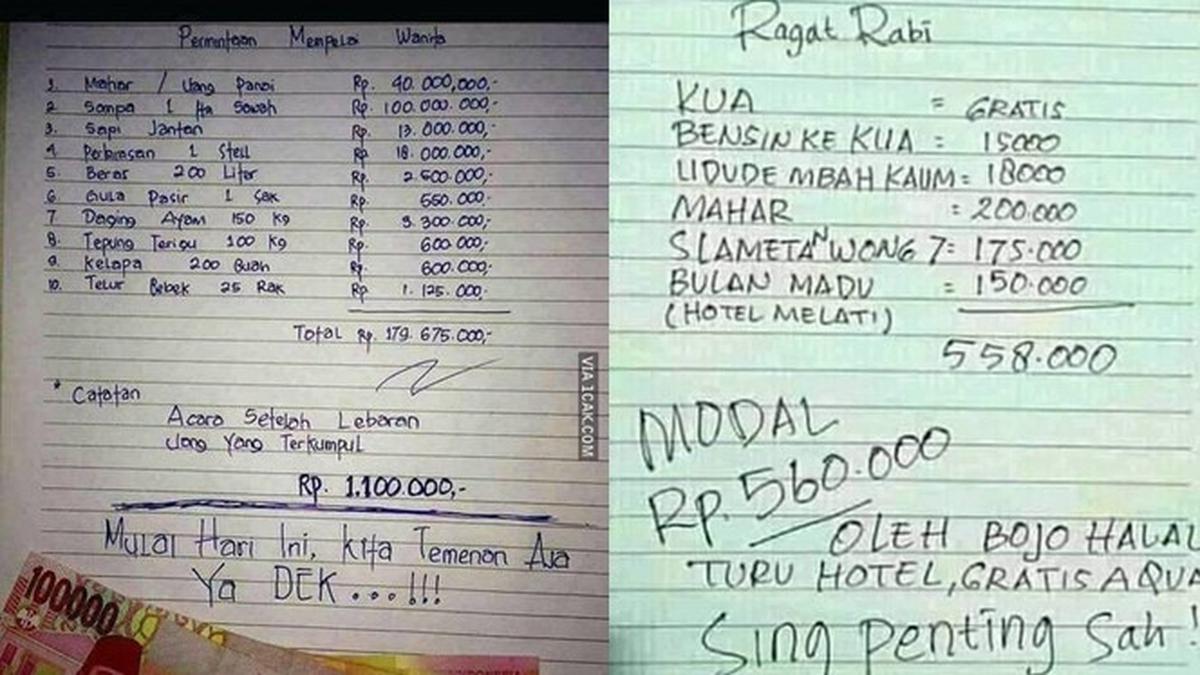 Permintaan Mempelai Wanita
1. Mahar / Uang Panai Rp. 40.000.000,-
2. Sompa 1 Ha Sawah Rp. 100.000.000,-
3. Sapi Jantan Rp. 13.000.000,-
4. Perhiasan 1 Stell Rp 18.000.000,-
5. Beras 200 Liter Rp. 2.500.000,-
6. Gula Pasir 1 Sak Rp. 550.000,-
7. Daging Ayam 150 Kg Rp. 3.300.000,-
8. Tepung Terigu 100 Kg Rp. 600.000,-
9. Kelapa 200 Buah Rp. 600.000,-
10. Telur Bebek 25 Rak Rp 1.125.000,-
Total Rp. 179.675.000,-
* Catatan
Acara Setelah Lebaran
Uang Yang Terkumpul
RP. 1.100.000,-
Mulai Hari Ini, Kita Temenan Aja
Ya DEK...!!!
100000
VIA 1CAK.COM
Ragat Rabi
KUA = GRATIS
BENSIN KE KUA = 15000
UDUDE MBAH KAUM = 18000
MAHAR = 200.000
SLAMETAN WONG 7 = 175.000
BULAN MADU = 150.000
(HOTEL MELATI)
558.000
MODAL
Rp. 560.000
OLEH BOJO HALAL
TURU HOTEL, GRATIS AQUA
Sing Penting Sah!